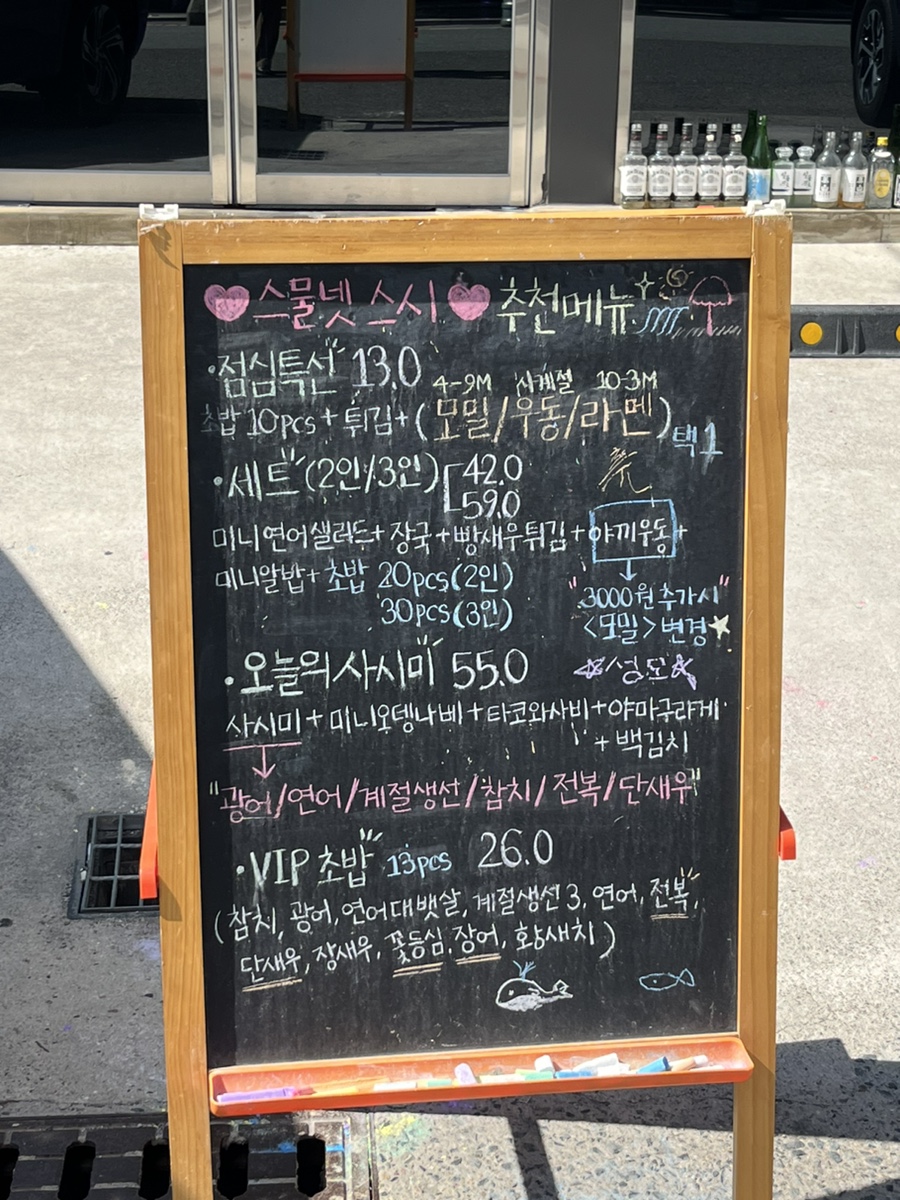 스물넷 스시 추천메뉴
·점심특선 13.0
4-9M 사계절 10-3M
초밥 10pcs + 튀김 + (모밀/우동/라멘) 택1
·세트 (2인/3인) 42.0
59.0
미니연어샐러드 + 장국 + 빵새우튀김 + 야끼우동 +
미니알밥 + 초밥 20pcs (2인)
30pcs (3인)
"3000원 추가시"
<모밀> 변경
·오늘의 사시미 55.0
사시미 + 미니오뎅나베 + 타코와사비 + 야마구라게
+ 백김치
"광어/연어/계절생선/참치/전복/단새우"
·VIP 초밥 13pcs 26.0
(참치, 광어, 연어대뱃살, 계절생선 3, 연어, 전복,
단새우, 장새우, 꽃등심, 장어, 황새치)